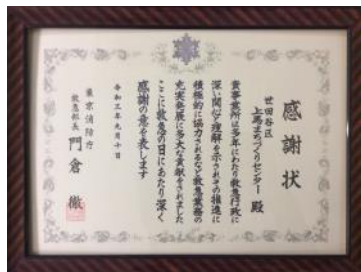 感謝状
世田谷区
上馬まちづくりセンター 殿
貴事業所は多年にわたり救急行政に
深い関心と理解を示されその推進に
積極的に協力されるなど救急業務の
充実発展に多大な貢献をされました
ここに救急の日にあたり深く
感謝の意を表します
令和三年九月十日
東京消防庁
救急部長 門倉 徹